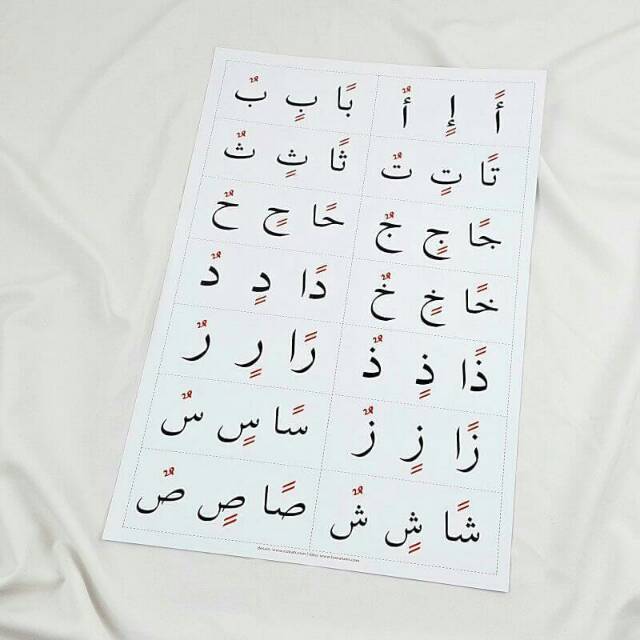 أً إٍ أٌ بًا بٍ بٌ
تًا تٍ تٌ ثًا ثٍ ثٌ
جًا جٍ جٌ حًا حٍ حٌ
خًا خٍ خٌ دًا دٍ دٌ
ذًا ذٍ ذٌ رًا رٍ رٌ
زًا زٍ زٌ سًا سٍ سٌ
شًا شٍ شٌ صًا صٍ صٌ